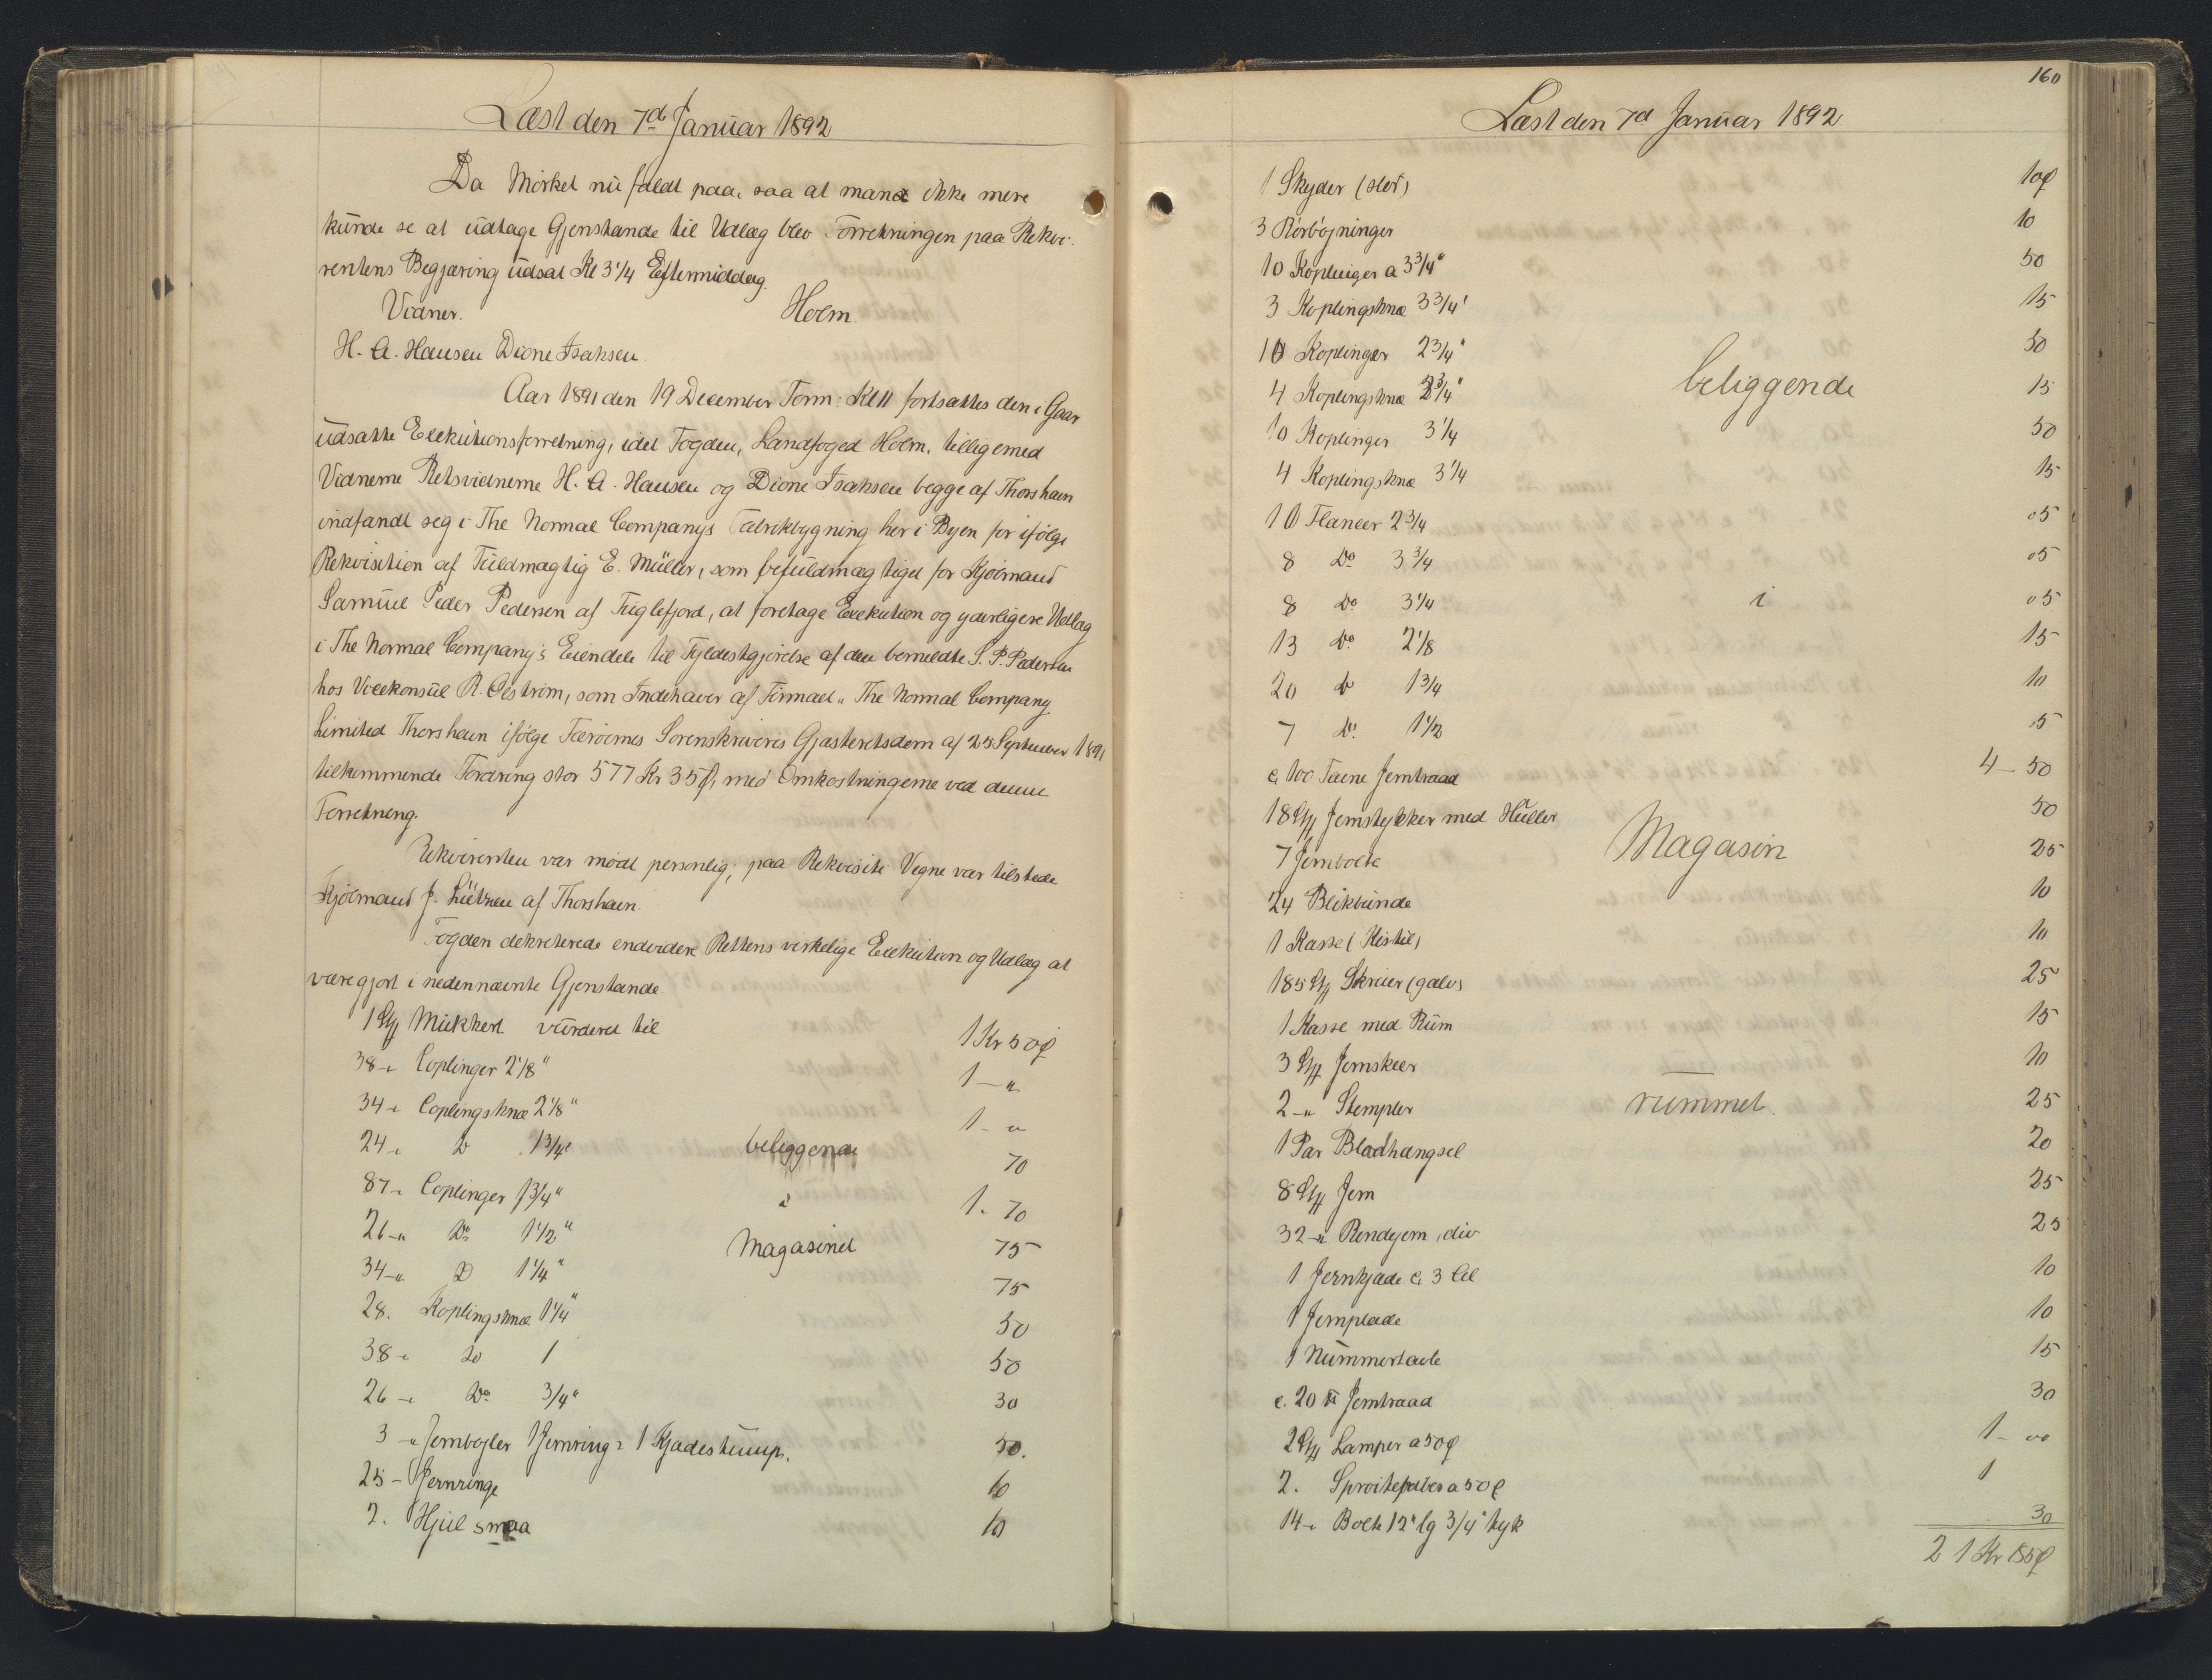 Læst den 7d Januar 1892
Da Mörket nu faldt paa, saa at man ikke mere
kunde se at udtage Gjenstande til Udlæg blev Forretningen paa Rekvi-
rentens Begjæring udsat Kl 3 1/4 Eftermiddag.
Vidner. Holm.
H. A. Hansen Dione Isaksen
Aar 1891 den 19 December Form: Kl 11 fortsattes den i Gaar
udsatte Exekutionsforretning, idet Fogden, Landfoged Holm, tilligemed
Vidnerne Retsvidnerne H. A. Hansen og Dione Isaksen begge af Thorshavn
indfandt sig i The Normal Companys Fabrikbygning her i Byen for ifölge
Rekvisition af Fuldmægtig E. Müller, som befuldmægtiget for Kjöbmand
Samuel Peder Pedersen af Fuglefjord, at foretage Exekution og yderligere Udlæg
i The Normal Company's Eiendele til Fyldestgjörelse af den bemeldte S. P. Pedersen
hos Vicekonsul R. Oeström, som Indehaver af Firmaet "The Normal Company
Limited Thorshavn ifölge Færöernes Sorenskriveris Gjæsteretsdom af 25 September 1891
tilkommende Fordring stor 577 Kr 35 Ø, med Omkostningerne ved denne
Forretning.
Rekvirenten var mödt personlig; paa Rekvisiti Vegne var tilstede
Kjöbmand J. Lützen af Thorshavn.
Fogden dekreterede endvidere Rettens virkelige Exekution og Udlæg at
være gjort i nedennævnte Gjenstande
1 Stk Mukkert vurderet til 1 Kr 50 Ø
38 - " Coplinger 2 1/8" 1 - "
34 - " Coplingsknæ 2 1/8" 1 - "
24 " Do 1 3/4" beliggende 70
87 " Coplinger 1 3/4" i 1. 70
26 - " Do 1 1/2" Magasinet 75
34 - " Do 1 1/4" 75
28. Koplingsknæ 1 1/4" 50
38 - " Do 1 50
26 - " Do 3/4" 30
3 - " Jernböjler 1 Jernring 1 Kjædestump. 50.
25 - Jernringe 10
2. Hjul smaa 10
160
Læst den 7d Januar 1892
1 Skyder (stor) 10 Ø
3 Rörböjninger 10
10 Koplinger a 3 3/4" 50
3 Koplingsknæ 3 3/4" 15
10 Koplinger 2 3/4" 50
4 Koplingsknæ 2 3/4" beliggende 15
10 Koplinger 3 1/4 50
4 Koplingsknæ 3 1/4 15
10 Flancer 2 3/4 05
8 Do 3 3/4 05
8 Do 3 1/4 i 05
13 Do 2 1/8 15
20 Do 1 3/4 10
7 Do 1 1/2 5
c. 100 Favne Jerntraad 4 - 50
18 Stk Jernstykker med Huller 50
7 Jernbolte Magasin 25
24 Blikbunde 10
1 Kasse ( 10
185 Stk Skruer (galv) 25
1 Kasse med Rum 15
3 Stk Jernskeer 10
2 - " Stempler rummet. 25
1 Par Bladhængsel 20
8 Stk Jern 25
32 - " Rendejern, div 25
1 Jernkjæde c. 3 Al 10
1 Jernplade 10
1 Nummertavle 15
c. 20 ℔ Jerntraad 30
2 Stk Lamper a 50 Ø 1 - 00
2. a 50 Ø 1
14 - " Bolte 12" lg 3/4" tyk 30
21 Kr 85 Ø